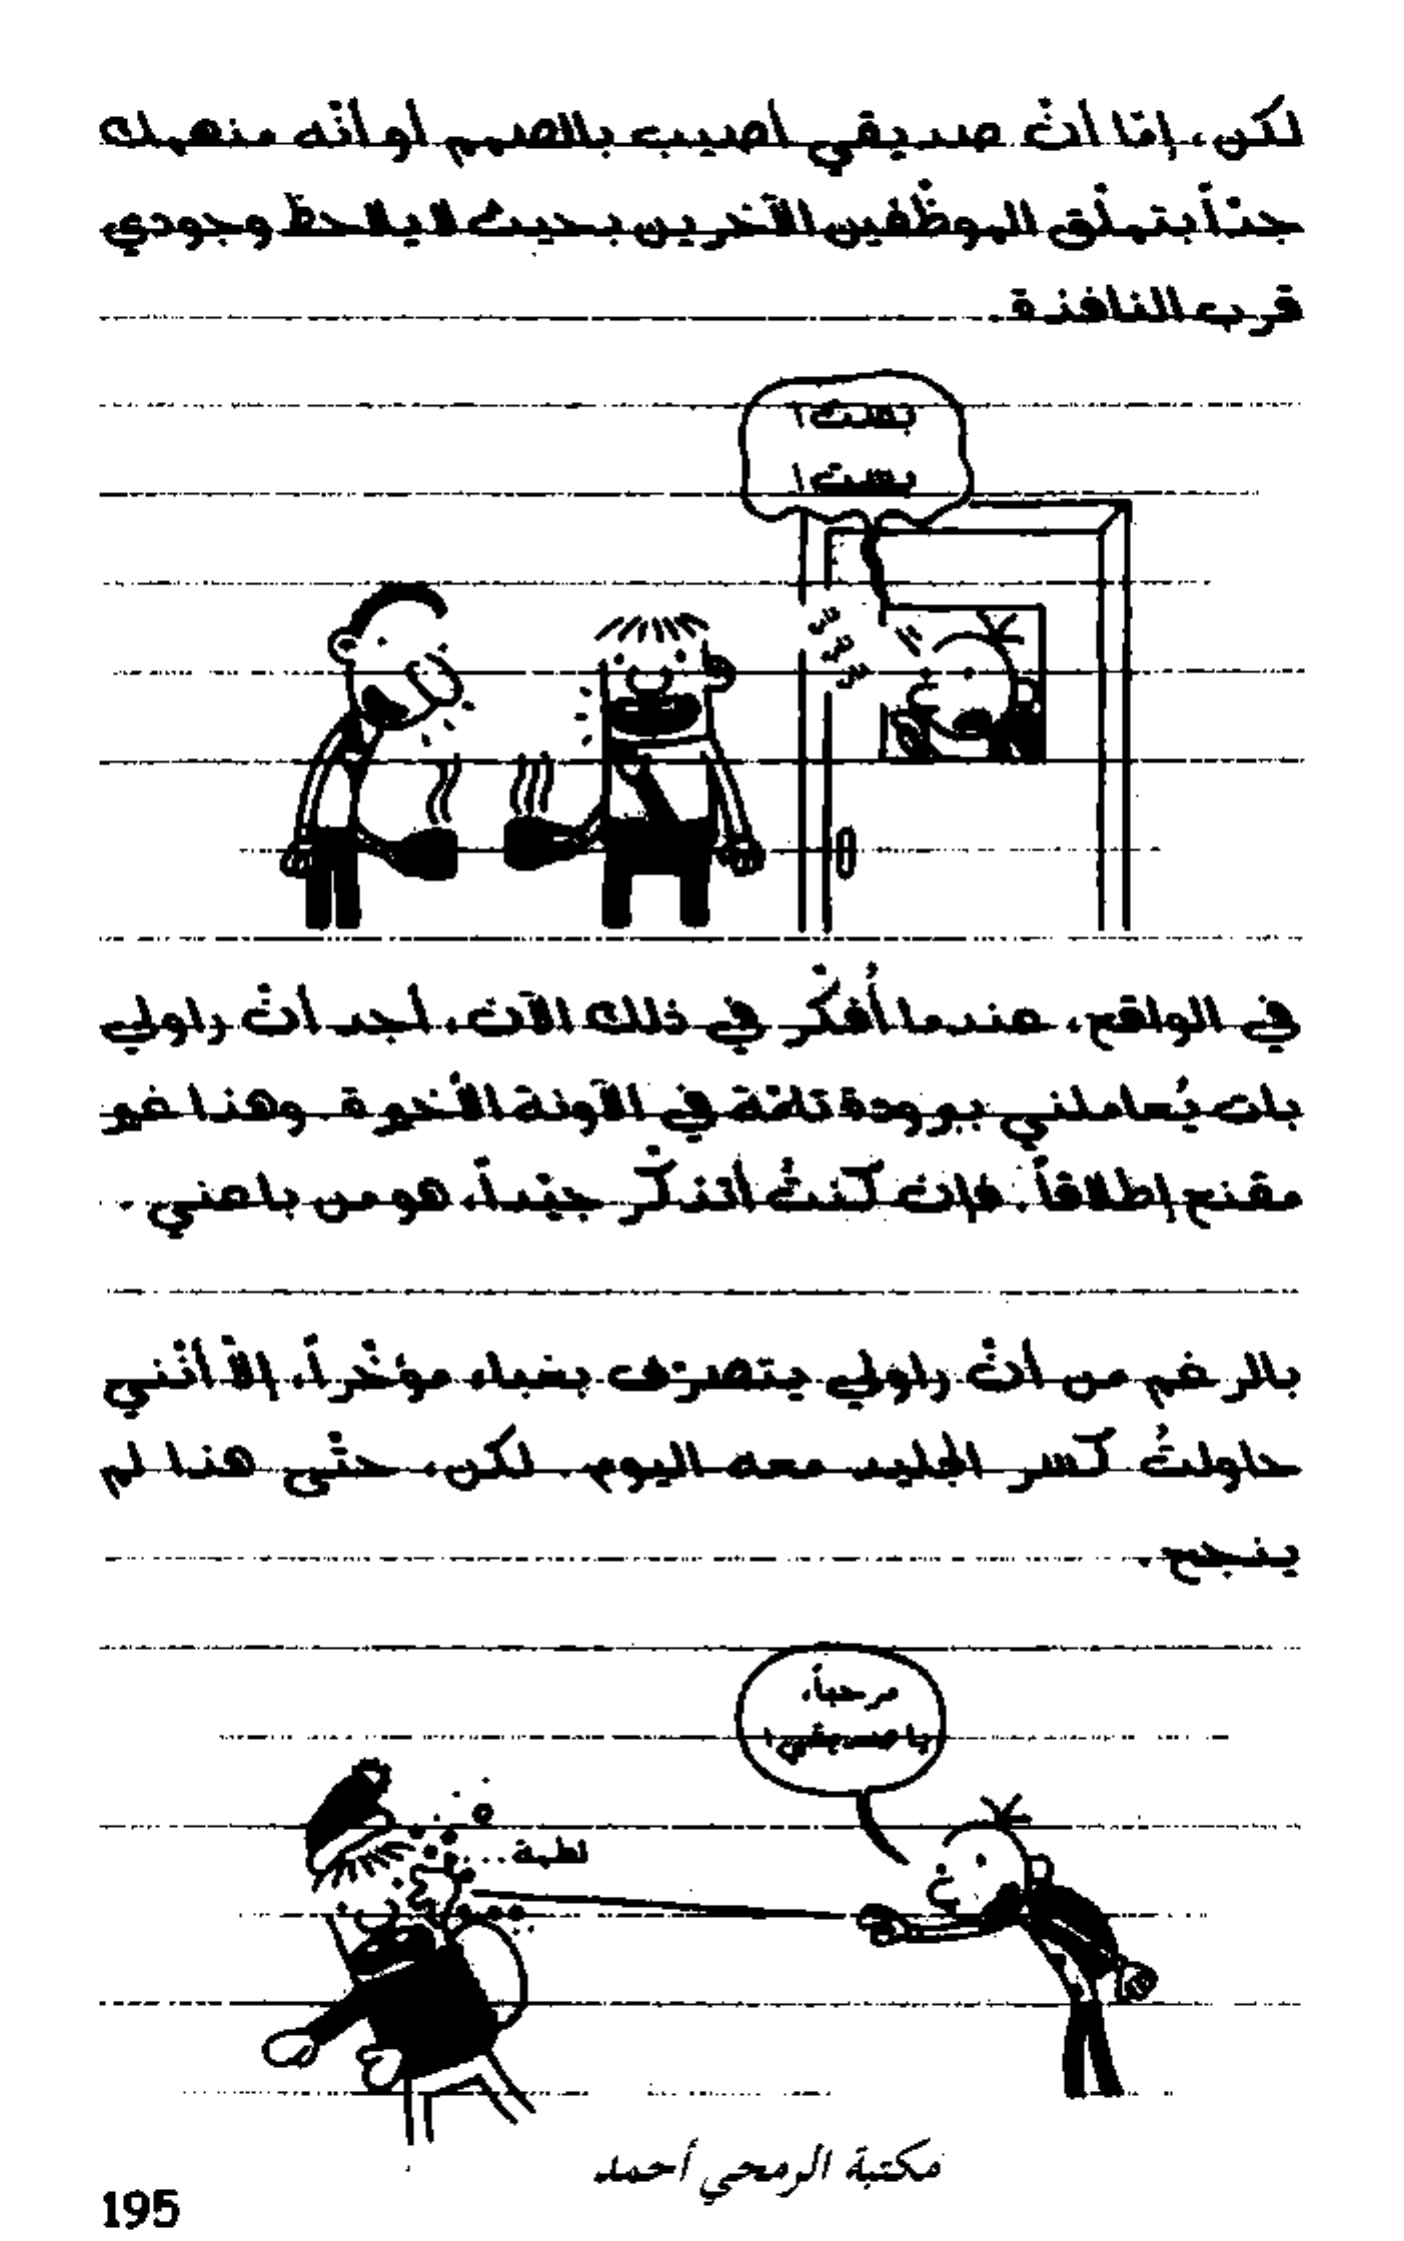 لكن، إمّا أنّ صديقي أصيب بالصمم أو أنّه منهمك
جدّاً بتملّق الموظّفين الآخرين بحيث لا يلاحظ وجودي
قرب النافذة.
بست!
بست!
في الواقع، عندما أُفكّر في ذلك الآن، أجد أنّ راولي
بات يُعاملني ببرودة تامّة في الآونة الأخيرة. وهذا غير
مقنع إطلاقاً. فإن كنتُ أتذكّر جيّداً، هو من باعني.
بالرغم من أنّ راولي يتصرّف بغباء مؤخّراً، إلاّ أنّني
حاولتُ كسر الجليد معه اليوم. لكن، حتّى هذا لم
ينجح.
مرحباً،
يا صديقي!
لطمة...
مكتبة الرمحي أحمد
195